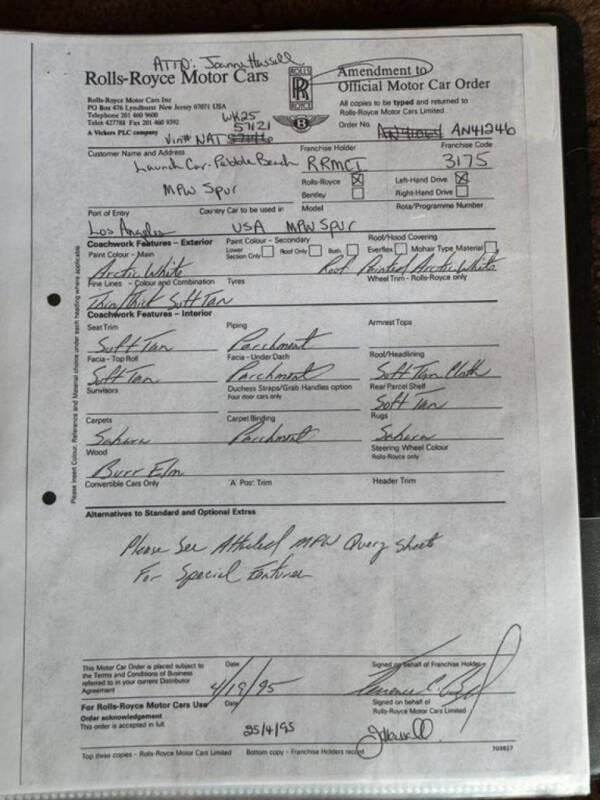 ATTN: Joanne Hassell
Rolls-Royce Motor Cars
ROLLS
RR
ROYCE
Amendment to
Official Motor Car Order
Rolls-Royce Motor Cars Inc
PO Box 476 Lyndhurst New Jersey 07071 USA
Telephone 201 460 9600
Telex 427788 Fax 201 460 9392
A Vickers PLC company
WK25
57121
Vin# NAT
B
All copies to be typed and returned to
Rolls-Royce Motor Cars Limited
Order No. AN41246
Customer Name and Address
Launch Car-Pebble Beach
MPW Spur
Franchise Holder
RRMCI
Franchise Code
3175
Rolls-Royce
Left-Hand Drive
Bentley
Right-Hand Drive
Port of Entry
Los Angeles
Country Car to be used in
USA
Model
MPW Spur
Rota/Programme Number
Please insert Colour, Reference and Material choice under each heading where applicable
Coachwork Features – Exterior
Paint Colour – Main
Arctic White
Paint Colour – Secondary
Lower Section Only
Roof Only
Both
Roof/Hood Covering
Everflex
Mohair Type Material
Roof Painted Arctic White
Fine Lines – Colour and Combination
Thin/Thick Soft Tan
Tyres
Wheel Trim – Rolls-Royce only
Coachwork Features – Interior
Seat Trim
Soft Tan
Piping
Parchment
Armrest Tops
Facia – Top Roll
Soft Tan
Facia – Under Dash
Parchment
Roof/Headlining
Soft Tan Cloth
Sunvisors
Duchess Straps/Grab Handles option
Four door cars only
Rear Parcel Shelf
Soft Tan
Carpets
Sahara
Carpet Binding
Parchment
Rugs
Sahara
Wood
Burr Elm
Steering Wheel Colour
Rolls-Royce only
Convertible Cars Only
'A' Post Trim
Header Trim
Alternatives to Standard and Optional Extras
Please See Attached MPW Query Sheets
For Special Features
This Motor Car Order is placed subject to
the Terms and Conditions of Business
referred to in your current Distributor
Agreement
Date
4/19/95
Signed on behalf of Franchise Holder
For Rolls-Royce Motor Cars Use
Order acknowledgement
This order is accepted in full.
Date
25/4/95
Signed on behalf of
Rolls-Royce Motor Cars Limited
JHassell
Top three copies – Rolls-Royce Motor Cars Limited
Bottom copy – Franchise Holders record
703827